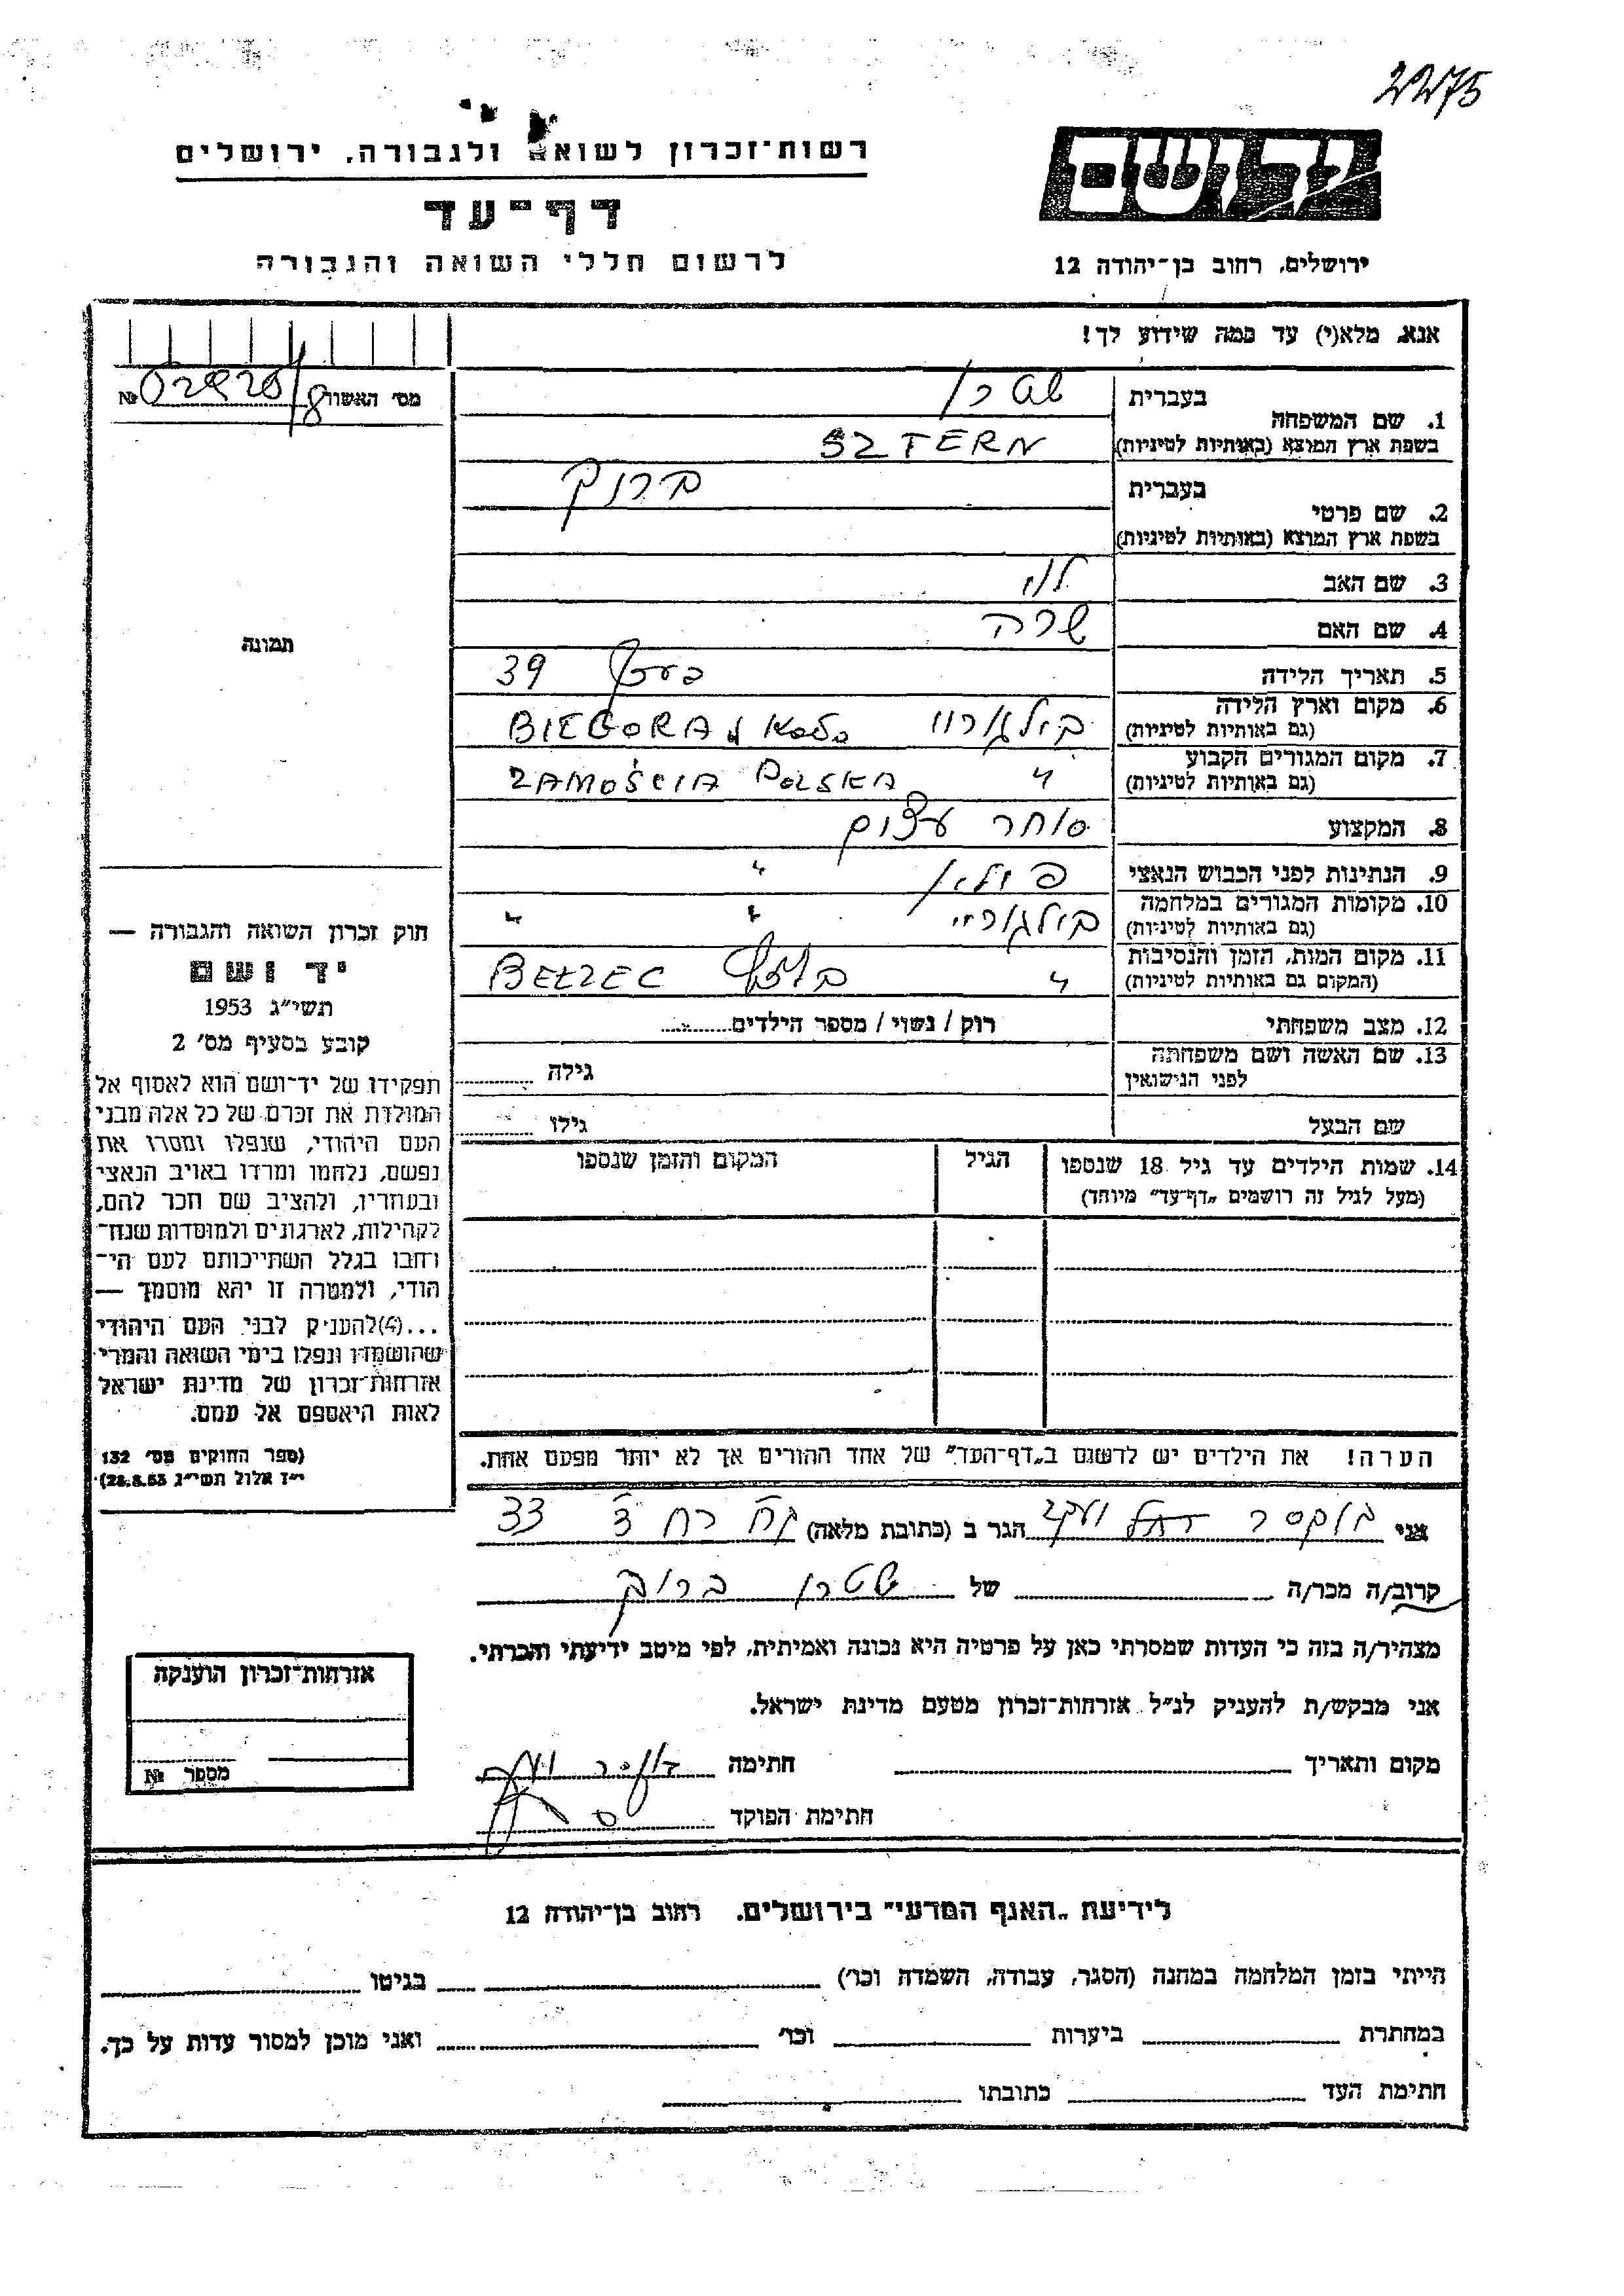 2275
רשות־זכרון לשואה ולגבורה, ירושלים
יד ושם
דף־עד
לרשום חללי השואה והגבורה
ירושלים, רחוב בן־יהודה 12
אנא, מלא(י) עד כמה שידוע לך!
מס׳ האשור №
1. שם המשפחה
בעברית שטרן
בשפת ארץ המוצא (באותיות לטיניות) SZTERN
2. שם פרטי
בעברית ברוך
בשפת ארץ המוצא (באותיות לטיניות)
3. שם האב לוי
4. שם האם שרה
5. תאריך הלידה 39
6. מקום וארץ הלידה
(גם באותיות לטיניות) בילגוריי
7. מקום המגורים הקבוע
(גם באותיות לטיניות) " ZAMOŚCIA POLSKA
8. המקצוע סוחר עצים
9. הנתינות לפני הכבוש הנאצי פולין "
10. מקומות המגורים במלחמה
(גם באותיות לטיניות) בילגוריי " "
11. מקום המות, הזמן והנסיבות
(המקום גם באותיות לטיניות) " BEŁZEC
12. מצב משפחתי רוק / נשוי / מספר הילדים
13. שם האשה ושם משפחתה
לפני הנישואין גילה
שם הבעל גילו
14. שמות הילדים עד גיל 18 שנספו הגיל המקום והזמן שנספו
(מעל לגיל זה רושמים „דף־עד״ מיוחד)
תמונה
חוק זכרון השואה והגבורה —
יד ושם
תשי״ג 1953
קובע בסעיף מס׳ 2
תפקידו של יד־ושם הוא לאסוף אל
המולדת את זכרם של כל אלה מבני
העם היהודי, שנפלו ומסרו את
נפשם, נלחמו ומרדו באויב הנאצי
ובעוזריו, ולהציב שם וזכר להם,
לקהילות, לארגונים ולמוסדות שנח־
רבו בגלל השתייכותם לעם הי־
הודי, ולמטרה זו יהא מוסמך —
...(4)להעניק לבני העם היהודי
שהושמדו ונפלו בימי השואה והמרי
אזרחות־זכרון של מדינת ישראל
לאות היאספם אל עמם.
(ספר החוקים מס׳ 132
י״ז אלול תשי״ג 28.8.53)
הערה! את הילדים יש לרשום ב„דף־העד״ של אחד ההורים אך לא יותר מפעם אחת.
אני הגר ב (כתובת מלאה) 33
קרוב/ה מכר/ה של שטרן ברוך
מצהיר/ה בזה כי העדות שמסרתי כאן על פרטיה היא נכונה ואמיתית, לפי מיטב ידיעתי והכרתי.
אני מבקש/ת להעניק לנ״ל אזרחות־זכרון מטעם מדינת ישראל.
מקום ותאריך חתימה
חתימת הפוקד
אזרחות־זכרון הוענקה
מספר №
לידיעת „האגף המדעי״ בירושלים, רחוב בן־יהודה 12
הייתי בזמן המלחמה במחנה (הסגר, עבודה, השמדה וכו׳) בגיטו
במחתרת ביערות וכו׳ ואני מוכן למסור עדות על כך.
חתימת העד כתובתו